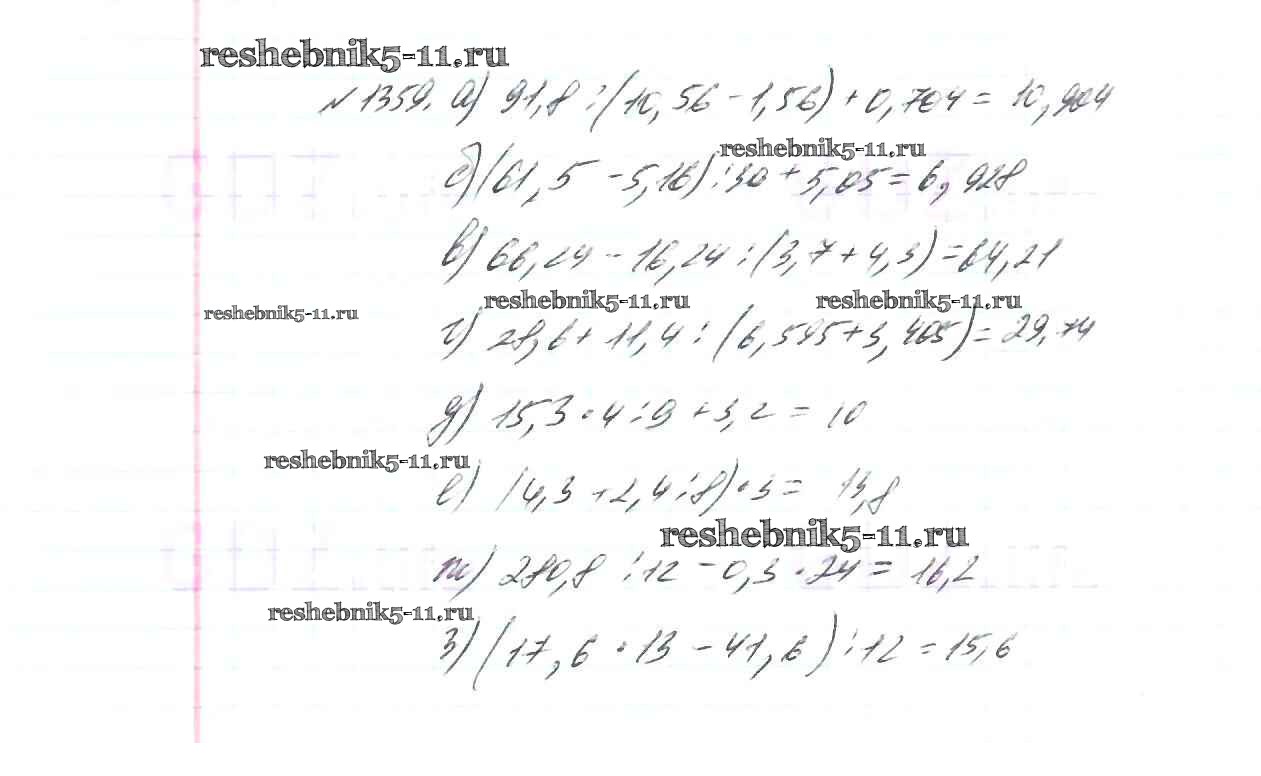 reshebnik5-11.ru
№1359. а) 91,8 : (10,56 - 1,56) + 0,704 = 10,904
reshebnik5-11.ru
б) (61,5 - 5,16) : 30 + 5,05 = 6,928
в) 66,24 - 16,24 : (3,7 + 4,3) = 64,21
reshebnik5-11.ru reshebnik5-11.ru
reshebnik5-11.ru
г) 28,6 + 11,4 : (6,595 + 3,405) = 29,74
д) 15,3 · 4 : 9 + 3,2 = 10
reshebnik5-11.ru
е) (4,3 + 2,4 : 8) · 3 = 13,8
reshebnik5-11.ru
ж) 280,8 : 12 - 0,3 · 24 = 16,2
reshebnik5-11.ru
з) (17,6 · 13 - 41,6) : 12 = 15,6